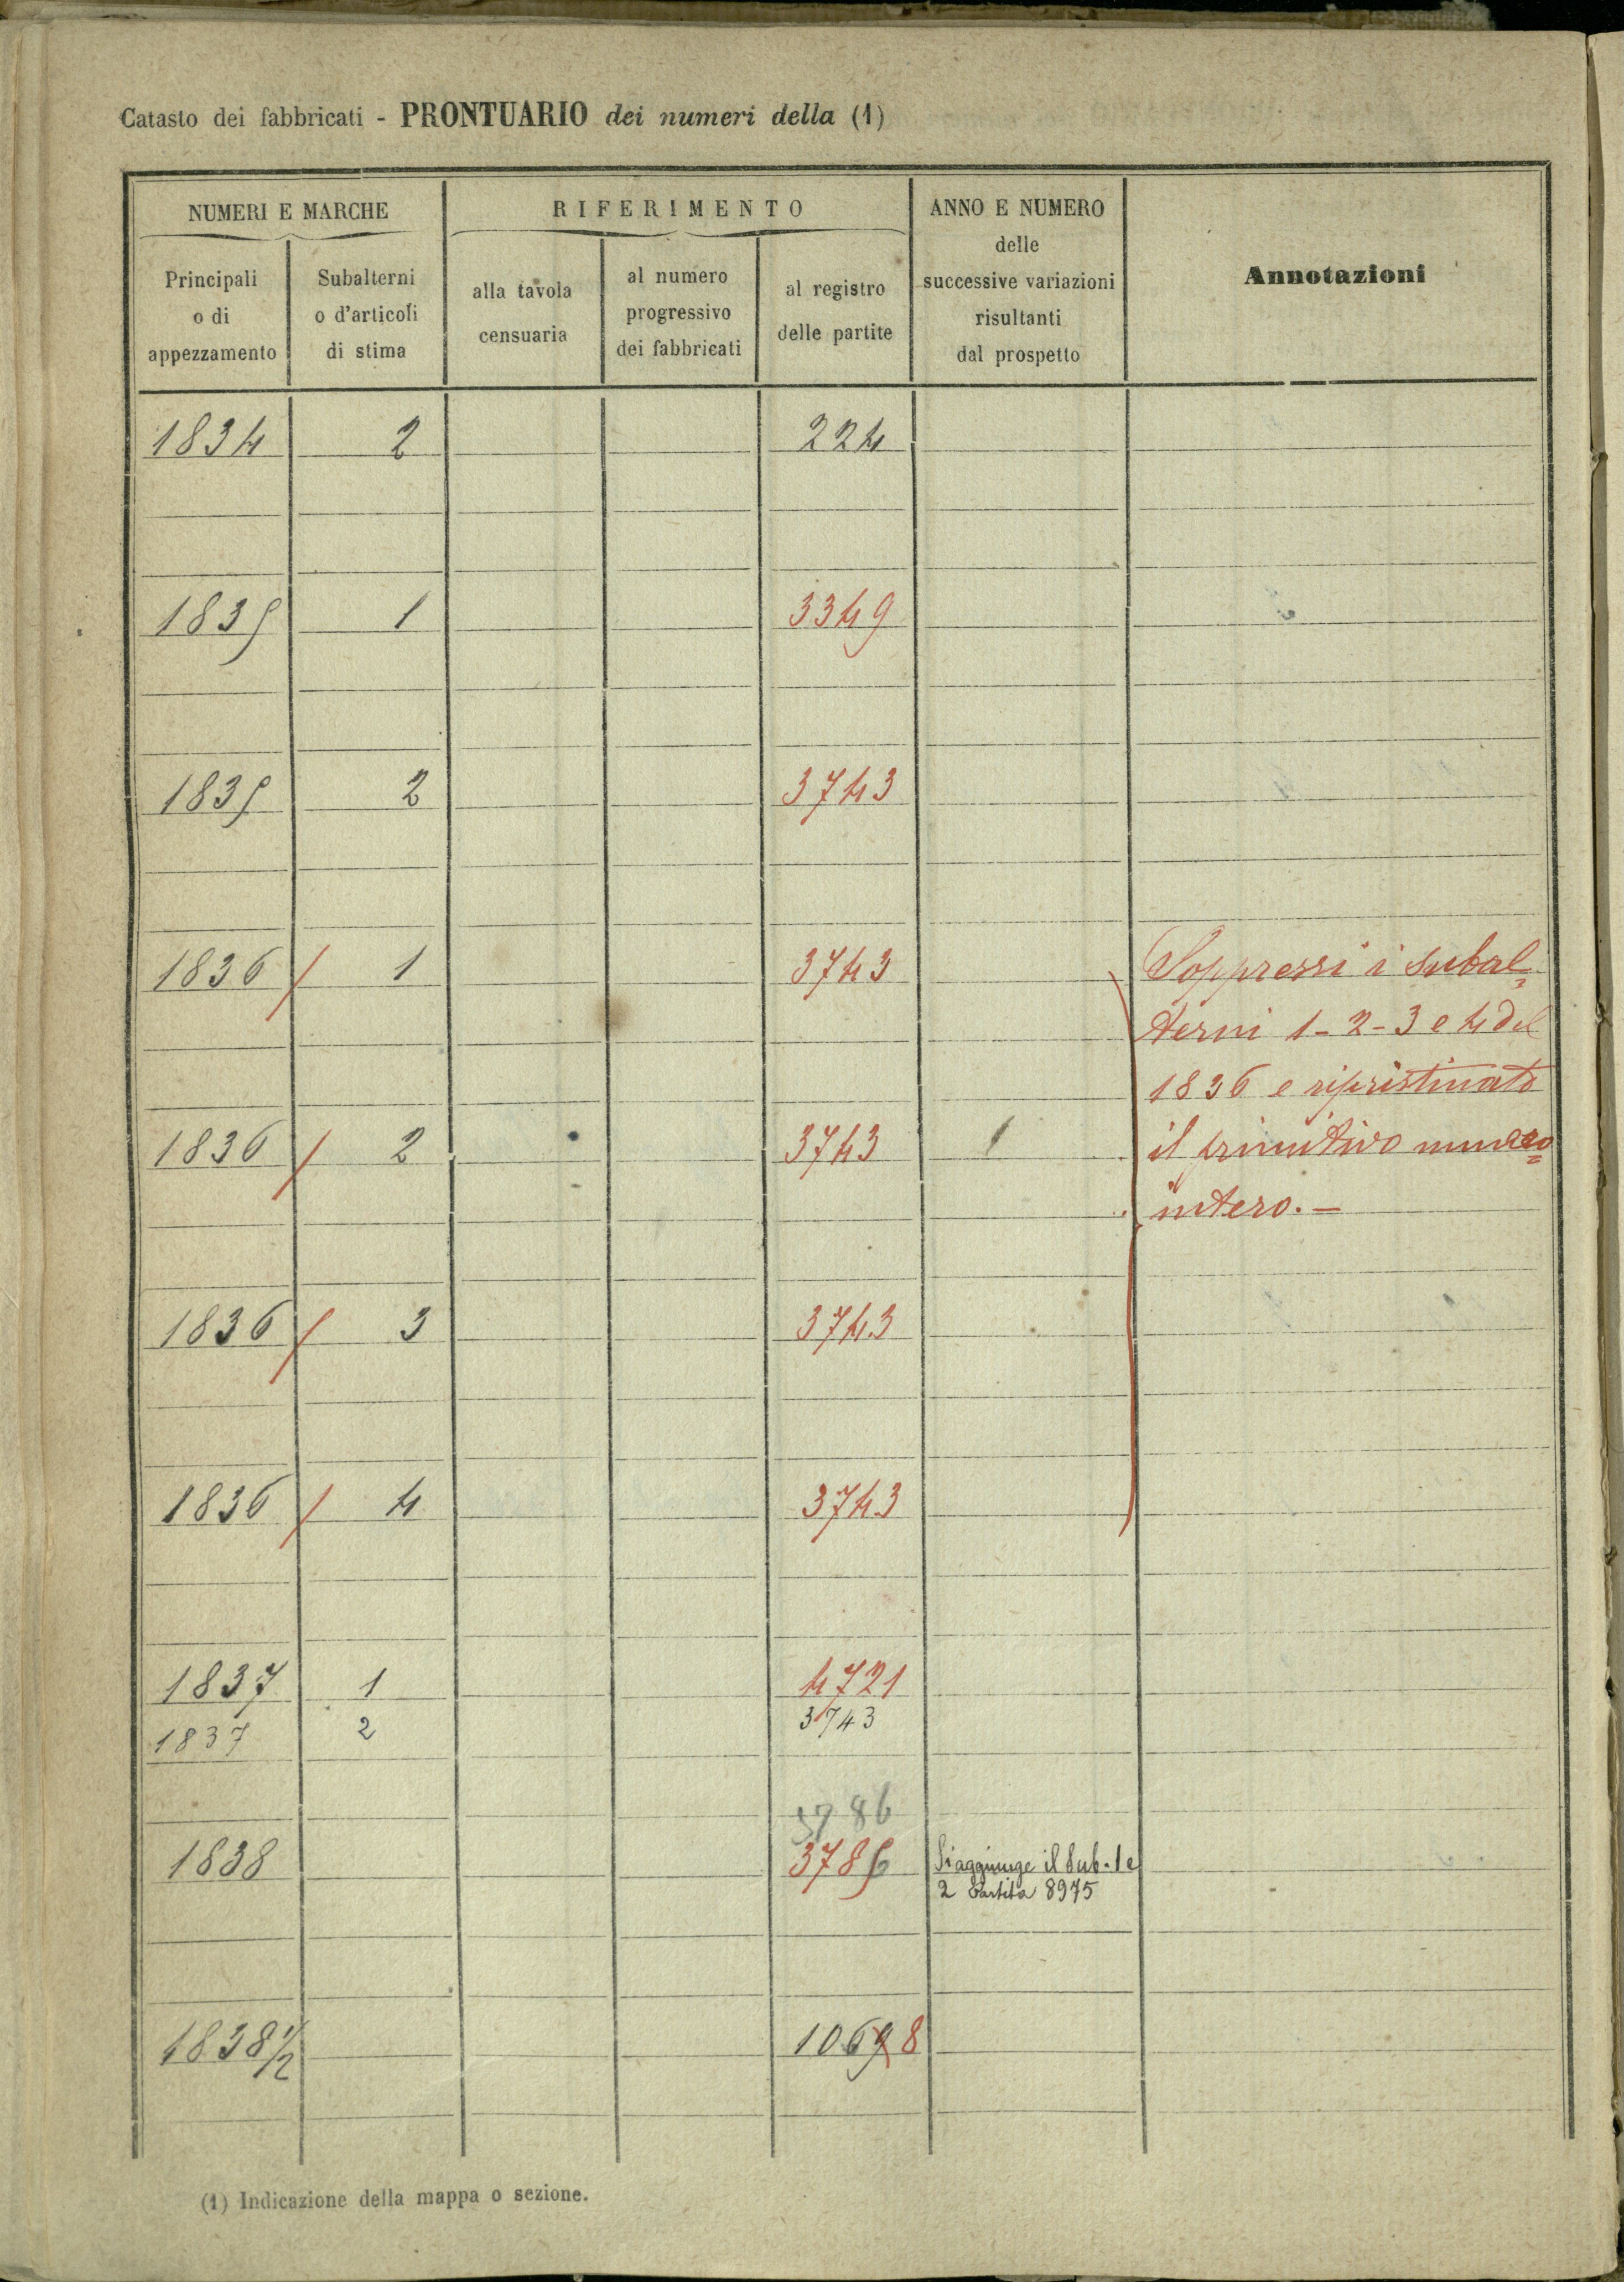 Catasto dei fabbricati - PRONTUARIO dei numeri della (1)
NUMERI E MARCHE
RIFERIMENTO
ANNO E NUMERO
delle
successive variazioni
risultanti
dal prospetto
Annotazioni
Principali
o di
appezzamento
Subalterni
o d'articoli
di stima
alla tavola
censuaria
al numero
progressivo
dei fabbricati
al registro
delle partite
1834 2 224
1835 1 3349
1835 2 3743
1836 / 1 3743 Soppressi i subal=
terni 1-2-3 e 4 del
1836 e ripristinato
1836 / 2 3743 il primitivo numero
intero. -
1836 / 3 3743
1836 / 4 3743
1837 1 4721
1837 2 3743
3786
1838 Si aggiunge il Sub. 1 e
2 Partita 8975
1838 1/2 1069 8
(1) Indicazione della mappa o sezione.